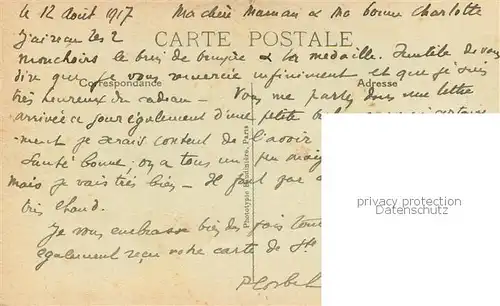 le 12 Août 1917 Ma chère Maman & Ma bonne Charlotte
CARTE POSTALE
J'ai reçu les 2
mouchoirs le brin de bruyère & la médaille. Inutile de vous
dire que je vous remercie infiniment et que je suis
Correspondance
Adresse
très heureux du cadeau - Vous me parlez dans une lettre
arrivée ce jour également d'une petite
ment je serais content de l'avoir
Santé bonne; on a tous un peu maigri
mais je vais très bien - Il fait par
très chaud.
Je vous embrasse bien des fois
également reçu votre carte de Ste
Phototypie Baudinière, Paris
privacy protection
Datenschutz